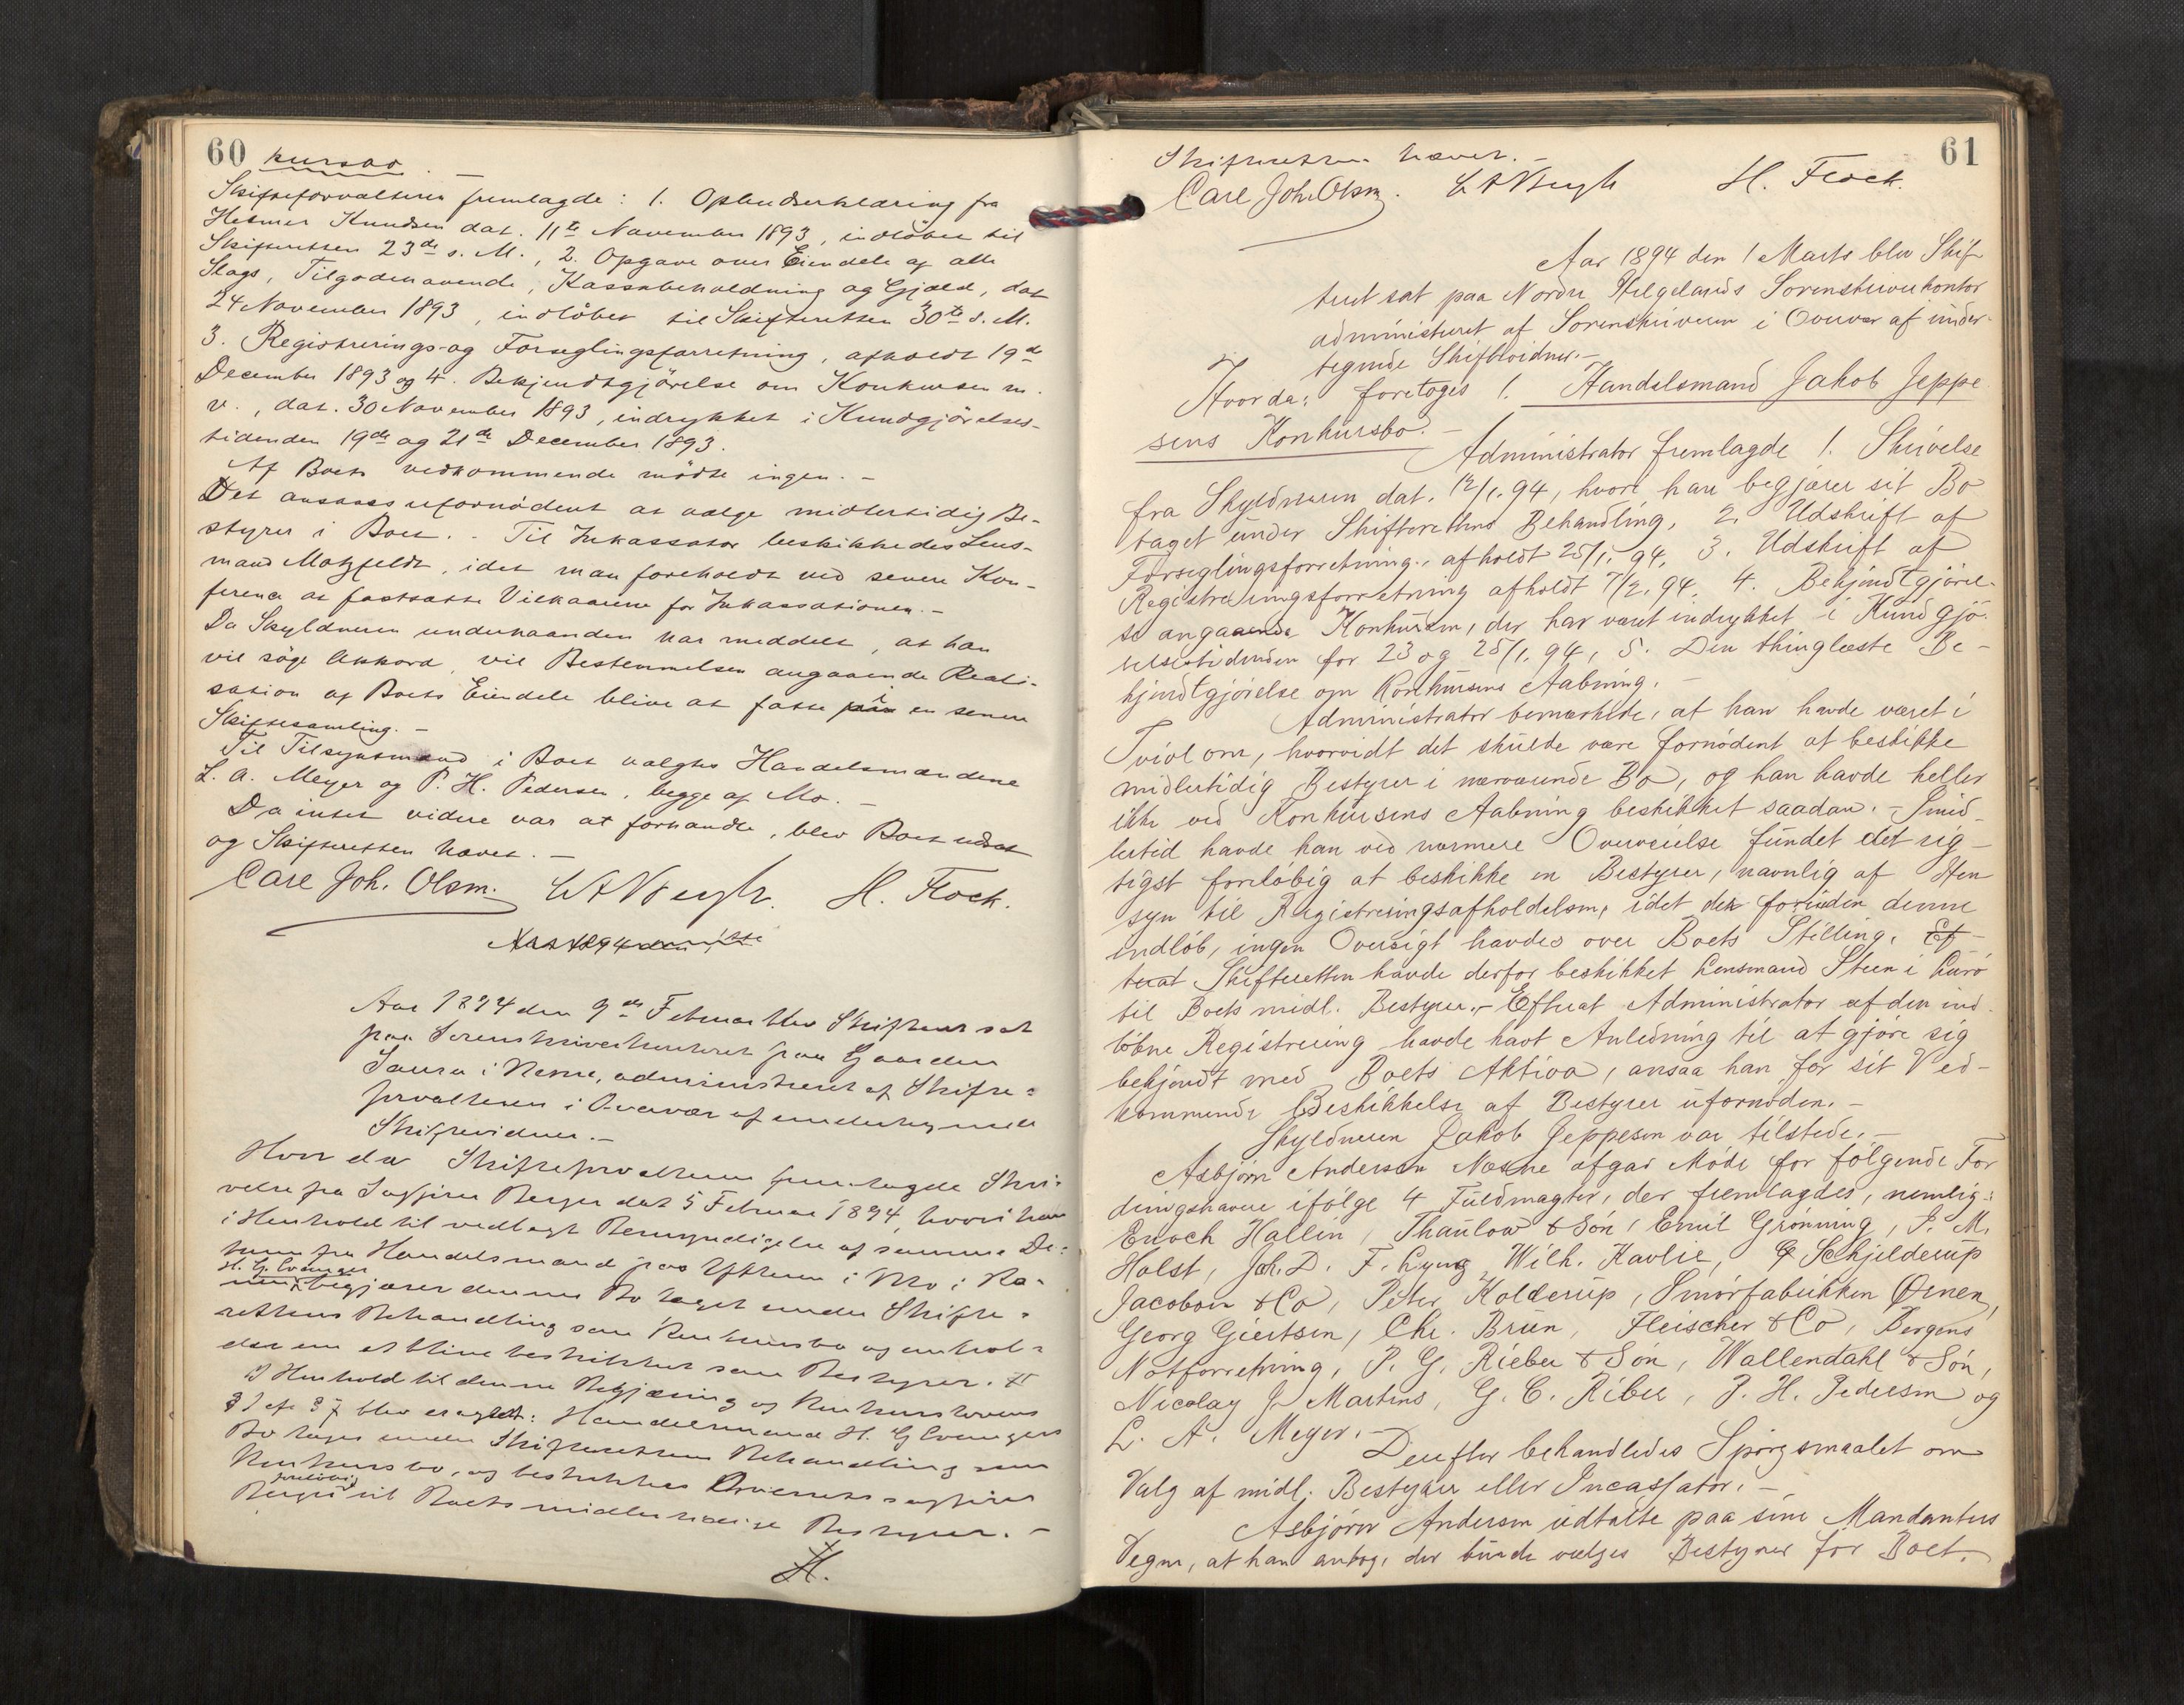 60 kursbo. -
Skifteforvalteren fremlagde: 1. Opbudserklæring fra
Helmer Knudsen dat. 11te November 1893, indløbet til
Skifteretten 23de s. M., 2. Opgave over Eiendele af alle
Slags, Tilgodehavende, Kassabeholdning og Gjæld, dat.
24 November 1893, indløbet til Skifteretten 30te s. M.
3. Registrerings- og Forseglingsforretning, afholdt 19de
December 1893 og 4. Bekjendtgjörelse om Konkursen m.
v., dat. 30 November 1893, indrykket i Kundgjörelses-
tidenden 19de og 21de December 1893.
Af Boets vedkommende mödte ingen. -
Det ansaaes ufornödent at vælge midlertidig Be-
styrer i Boet. - Til Inkassator beskikkedes Lens-
mand Motzfeldt, idet man foreholdt ved senere Kon-
ference at fastsætte Vilkaarene for Inkassationen. -
Da Skyldneren underhaanden har meddelt, at han
vil söge Akkord, vil Bestemmelsen angaaende Reali-
sation af Boets Eiendele blive at fatte i en senere
Skiftesamling. -
Til Tilsynsmænd i Boet valgtes Handelsmændene
L. A. Meyer og P. H. Pedersen, begge af Mo. -
Da intet videre var at forhandle, blev Boet udsat
og Skifteretten hævet. -
Carl Joh. Olsen. H. Flock.
Aar 1894 den
Aar 1894 den 9de Februar blev Skifteret sat
paa Sorenskriverkontoret paa Gaarden
i Nesna, administreret af Skifte-
forvalteren i Overvær af undertegnede
Skiftevidner. -
Hvor da Skifteforvalteren fremlagde Skri-
velse fra Sagfører Berger dat 5 Februar 1894, hvori han
i Henhold til vedlagt Bemyndigelse af samme Da-
tum fra Handelsmand i Mo i Ra-
nen H. G. Evenger begjærer dennes Bo taget under Skifte-
rettens Behandling som Konkursbo og anhol-
der om at blive beskikket som Bestyrer.
I Henhold til denne Begjæring og Konkurslovens
§ 1 cfr § 7 blev eragtet: Handelsmand H. G. Evengers
Bo tages under Skifterettens Behandling som
Konkursbo, og beskikkes Overretssagfører
Berger foreløbig til Boets midlertidige Bestyrer. -
H.
61
Skifteretten hævet. -
Carl Joh. Olsen. H. Flock.
Aar 1894 den 1 Marts blev Skif-
teret sat paa Nordre Helgelands Sorenskriverkontor
administreret af Sorenskriveren i Overvær af under-
tegnede Skiftevidner. -
Hvorda: foretoges 1. Handelsmand Jakob Jeppe
sens Konkursbo. -
Administrator fremlagde 1. Skrivelse
fra Skyldneren dat. 12/1. 94, hvori han begjærer sit Bo
taget under Skifterettens Behandling, 2. Udskrift af
Forseglingsforretning, afholdt 25/1. 94, 3. Udskrift af
Registreringsforretning afholdt 7/2. 94, 4. Bekjendtgjørel-
se angaaende Konkursen, der har været indrykket i Kundgjø-
relsestidenden for 23 og 25/1. 94, 5. Den thinglæste Be-
kjendtgjørelse om Konkursens Aabning. -
Administrator bemærkede, at han havde været i
Tvivl om, hvorvidt det skulde være fornødent at beskikke
midlertidig Bestyrer i nærværende Bo, og han havde heller
ikke ved Konkursens Aabning beskikket saadan. - Imid-
lertid havde han ved nærmere Overveielse fundet det rig-
tigst foreløbig at beskikke en Bestyrer, navnlig af Hen
syn til Registreringsafholdelsen, idet der forinden denne
indløb, ingen Oversigt havdes over Boets Stilling. Ef-
terat Skifteretten havde derfor beskikket Lensmand Steen i Lurø
til Boets midl. Bestyrer. - Efterat Administrator af den ind-
løbne Registrering havde havt Anledning til at gjøre sig
bekjendt med Boets Aktiva, ansaa han for sit Ved-
kommende Beskikkelse af Bestyrer ufornøden. -
Skyldneren Jakob Jeppesen var tilstede. -
Asbjørn Andersen Næsne afgav Møde for følgende For
dringshavere ifølge 4 Fuldmagter, der fremlagdes, nemlig:
Enoch Hallin, Thaulow & Søn, Emil Grønning, P. M.
Holst, Joh. D. F. Lyng, Wilh. Kavlie, G Schjelderup
Jacobsen & Co, Peter Kolderup, Smørfabrikken Ørnen,
Georg Giertsen, Chr. Bruun, Fleischer & Co, Bergens
Notforretning, P. G. Rieber & Søn, Wallendahl & Søn,
Nicolay J Martens, G. C. Riber, P. H. Pedersen og
L. A. Meyer. -
Derefter behandledes Spørgsmaalet om
Valg af midl. Bestyrer eller Incassator. -
Asbjørn Andersen udtalte paa sine Mandanters
Vegne, at han antog, der burde vælges Bestyrer for Boet.